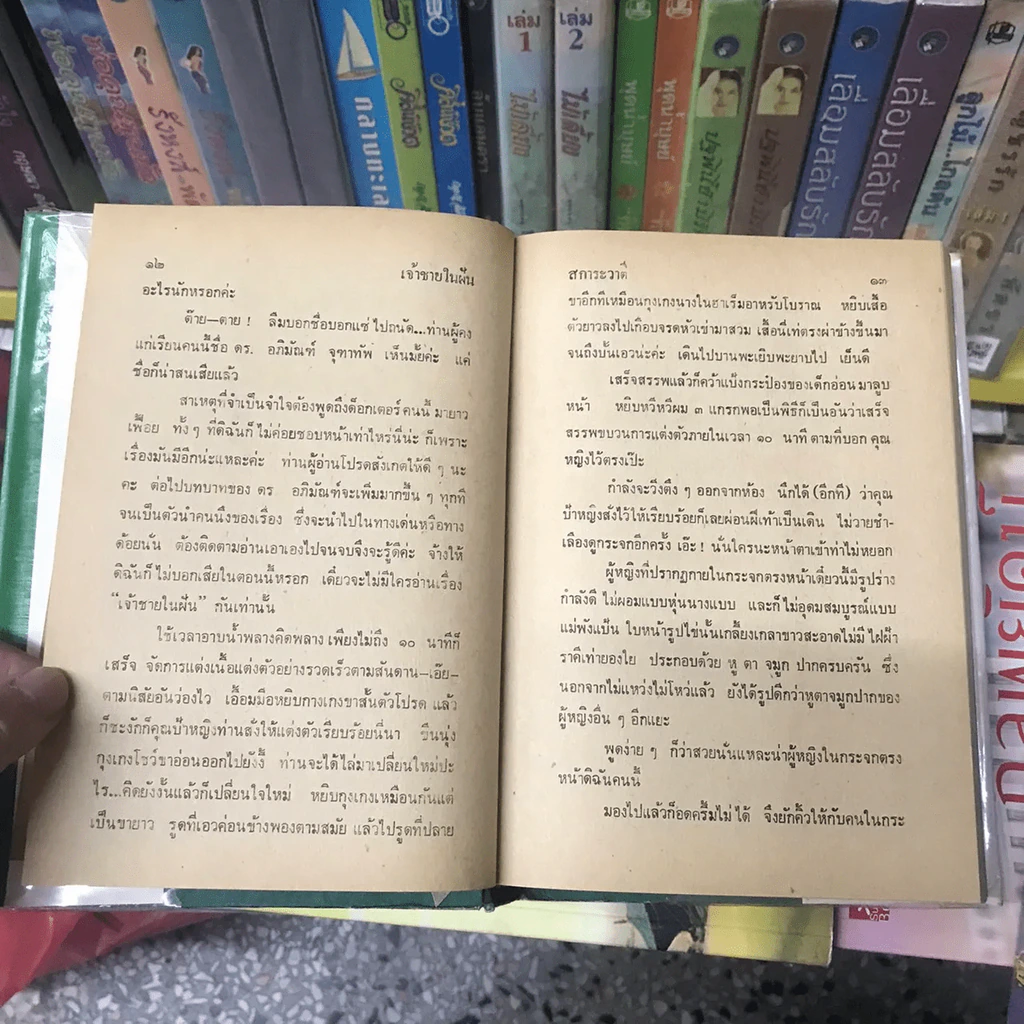 เล่ม
1
เล่ม
2
กุหลาบทะเล
เลื่อมสลับรัก
เลื่อมสลับรัก
๑๒
เจ้าชายในฝัน
อะไรนักหรอกค่ะ
ต๊าย—ตาย ! ลืมบอกชื่อบอกแซ่ไปถนัด...ท่านผู้คง
แก่เรียนคนนี้ชื่อ ดร. อภิมัณฑ์ จุฑาทัพ เห็นมั้ยค่ะ แค่
ชื่อก็น่าสนเสียแล้ว
สาเหตุที่จำเป็นจำใจต้องพูดถึงด็อกเตอร์คนนี้ มายาว
เฟื้อย ทั้ง ๆ ที่ดิฉันก็ไม่ค่อยชอบหน้าเท่าไหร่นี่น่ะ ก็เพราะ
เรื่องมันมีอีกน่ะแหละค่ะ ท่านผู้อ่านโปรดสังเกตให้ดี ๆ นะ
คะ ต่อไปบทบาทของ ดร อภิมัณฑ์จะเพิ่มมากขึ้น ๆ ทุกที
จนเป็นตัวนำคนนึงของเรื่อง ซึ่งจะนำไปในทางเด่นหรือทาง
ด้อยนั้น ต้องติดตามอ่านเอาเองไปจนจบจึงจะรู้ดีค่ะ จ้างให้
ดิฉันก็ไม่บอกเสียในตอนนี้หรอก เดี๋ยวจะไม่มีใครอ่านเรื่อง
“เจ้าชายในฝัน” กันเท่านั้น
ใช้เวลาอาบน้ำพลางคิดพลาง เพียงไม่ถึง ๑๐ นาทีก็
เสร็จ จัดการแต่งเนื้อแต่งตัวอย่างรวดเร็วตามสันดาน—เอ๊ย—
ตามนิสัยอันว่องไว เอื้อมมือหยิบกางเกงขาสั้นตัวโปรด แล้ว
ก็ชะงักก็คุณป้าหญิงท่านสั่งให้แต่งตัวเรียบร้อยนี่นา ขืนนุ่ง
กุงเกงโชว์ขาอ่อนออกไปยังงี้ ท่านจะได้ไล่มาเปลี่ยนใหม่ปะ
ไร...คิดยังงั้นแล้วก็เปลี่ยนใจใหม่ หยิบกุงเกงเหมือนกันแต่
เป็นขายาว รูดที่เอวค่อนข้างพองตามสมัย แล้วไปรูดที่ปลาย
สการะวาตี
๑๓
ขาอีกทีเหมือนกุงเกงนางในฮาเร็มอาหรับโบราณ หยิบเสื้อ
ตัวยาวลงไปเกือบจรดหัวเข่ามาสวม เสื้อนี่เท่ตรงผ่าข้างขึ้นมา
จนถึงบั้นเอวน่ะค่ะ เดินไปบานพะเยิบพะยาบไป เย็นดี
เสร็จสรรพแล้วก็คว้าแป้งกระป๋องของเด็กอ่อนมาลูบ
หน้า หยิบหวีหวีผม ๓ แกรกพอเป็นพิธีก็เป็นอันว่าเสร็จ
สรรพขบวนการแต่งตัวภายในเวลา ๑๐ นาที ตามที่บอก คุณ
หญิงไว้ตรงเป๊ะ
กำลังจะวิ่งตึง ๆ ออกจากห้อง นึกได้ (อีกที) ว่าคุณ
ป้าหญิงสั่งไว้ให้เรียบร้อยก็เลยผ่อนฝีเท้าเป็นเดิน ไม่วายชำ-
เลืองดูกระจกอีกครั้ง เอ๊ะ ! นั่นใครนะหน้าตาเข้าท่าไม่หยอก
ผู้หญิงที่ปรากฏกายในกระจกตรงหน้าเดี๋ยวนี้มีรูปร่าง
กำลังดี ไม่ผอมแบบหุ่นนางแบบ และก็ไม่อุดมสมบูรณ์แบบ
แม่พังแป้น ใบหน้ารูปไข่นั้นเกลี้ยงเกลาขาวสะอาดไม่มีไฝฝ้า
ราคีเท่ายองใย ประกอบด้วย หู ตา จมูก ปากครบครัน ซึ่ง
นอกจากไม่แหว่งไม่โหว่แล้ว ยังได้รูปดีกว่าหูตาจมูกปากของ
ผู้หญิงอื่น ๆ อีกแยะ
พูดง่าย ๆ ก็ว่าสวยนั่นแหละน่าผู้หญิงในกระจกตรง
หน้าดิฉันคนนี้
มองไปแล้วก็อดครึ้มไม่ได้ จึงยักคิ้วให้กับคนในกระ